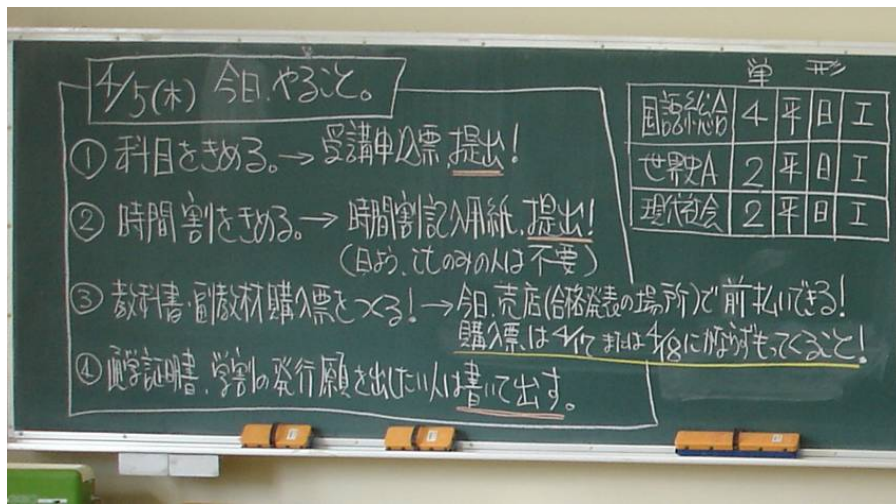 4/5(木) 今日、やること。
① 科目をきめる。→ 受講申込票 提出!
② 時間割をきめる。→ 時間割記入用紙、提出!
(日よう、ITのみの人は不要)
③ 教科書・副教材購入票をつくる!→今日、売店(合格発表の場所)で前払いできる!
購入票は4/17または4/18にかならずもってくること!
④ 通学証明書、学割の発行願を出したい人は書いて出す。
単 形
国語総合 4 平 日 I
世界史A 2 平 日 I
現代社会 2 平 日 I